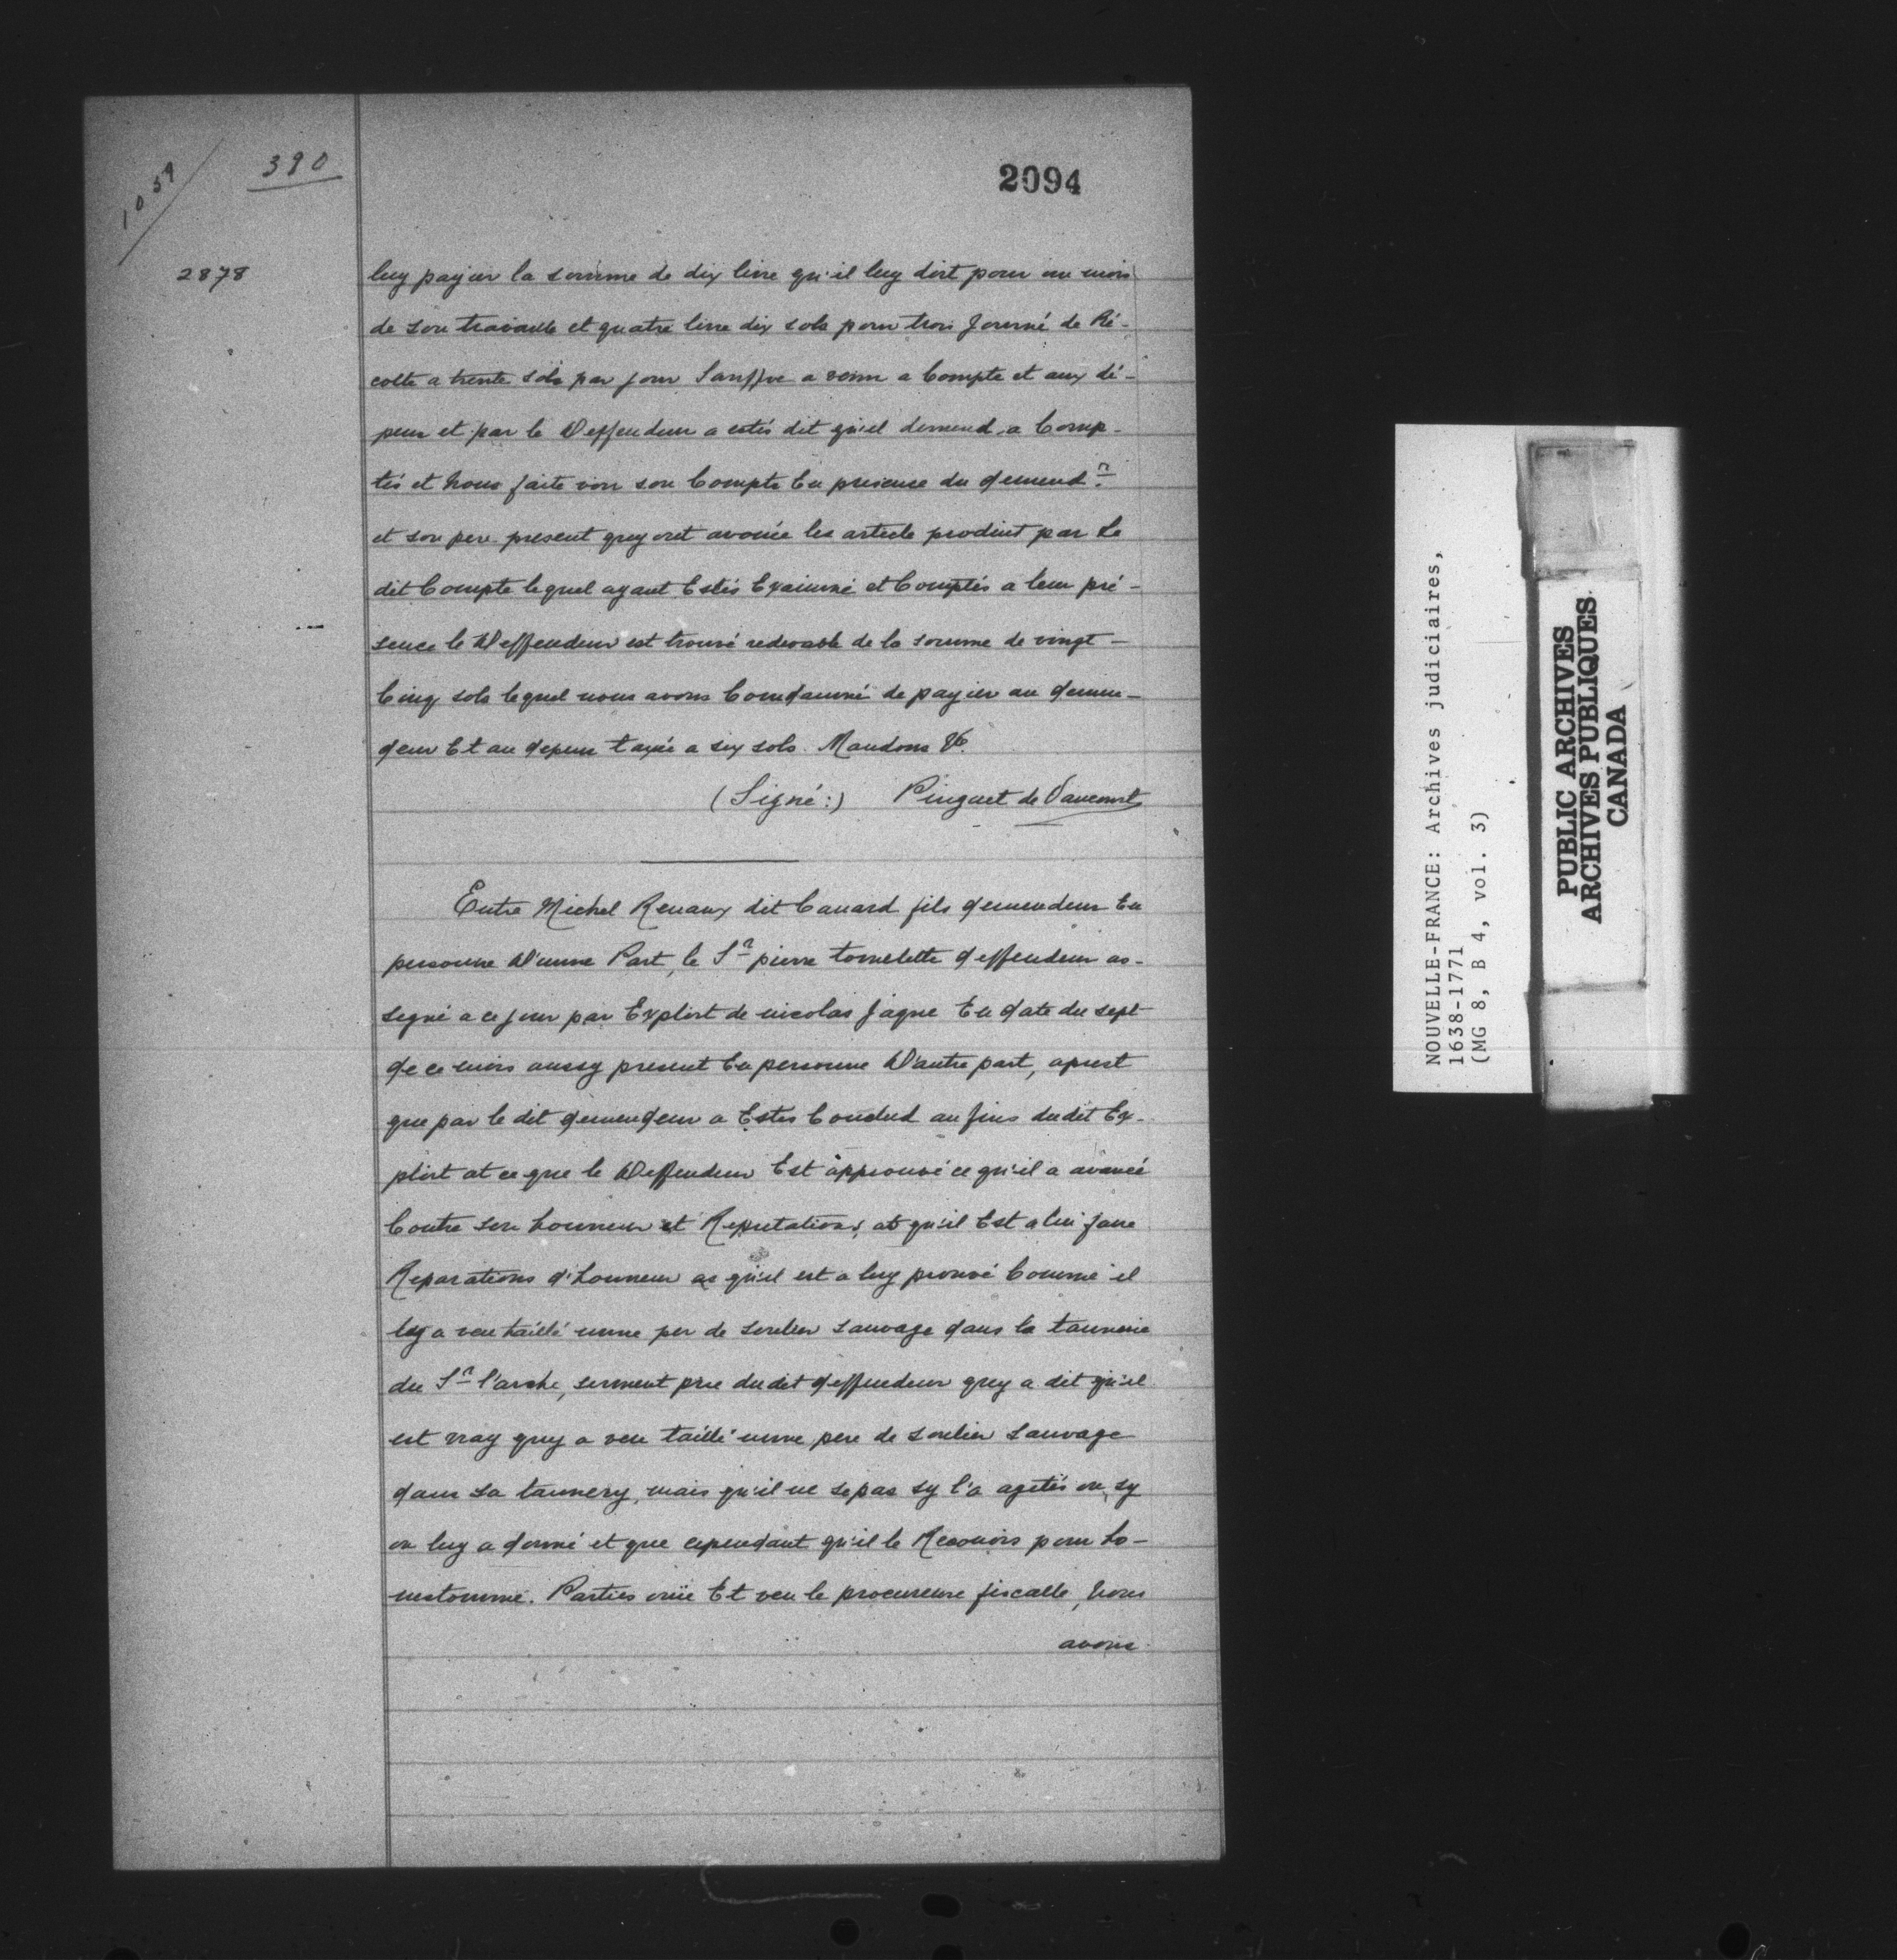 1059
390
2094
2878
luy payer la somme de dix livre qu'il luy doit pour un mois
de son travaille et quatre livre dix sols pour trois Journé de Ré-
colte a trente sols par jour Sauffve a venir a Compte et aux dé-
pens et par le Deffendeur a estés dit qu'il demend a Comp-
tés et nous faite voir son Compte En presence du demend.r
et son pere present quy ont avoüée les article produit par Le
dit Compte lequel ayant Estés Examiné et Comptés a leur pré-
sence le Deffendeur est trouvé redevable de la somme de vingt-
Cinq sols lequel nous avons Comdamné de payier au demen-
deur Et au depens taxée a six sols. Mandons &c.
(Signé:) Pinguet de Vaucourt
Entre Michel Renaux dit Canard fils demendeur En
personne D'unne Part, le Sr pierre tomelette deffendeur as-
segné a ce jour par Exploit de nicolas Jaque En date du sept
de ce mois aussy present En personne D'autre part, aprest
que par le dit demendeur a Estés Conclud au fins dudit Ex-
ploit at ce que le Deffendeur Est approuvé ce qu'il a avancé
Contre son honneur et Reputations, at qu'il Est a lui faire
Reparations d'honneur as qu'il est a luy prouvé Comme il
luy a veu taillé unne per de soulier sauvage dans la tannerie
du Sr l'arche, serment prie dudit deffendeur quy a dit qu'il
est vray quy a veu taillé unne pere de soulier sauvage
dans sa tannery, mais qu'il ne sepas sy l'a agetés ou sy
on luy a donné et que cependant qu'il le Reconois pour ho-
nestomme. Parties ouïe Et veu le procureure fiscalle, Nous
avons
NOUVELLE-FRANCE: Archives judiciaires,
1638-1771
(MG 8, B 4, vol. 3)
PUBLIC ARCHIVES
ARCHIVES PUBLIQUES
CANADA